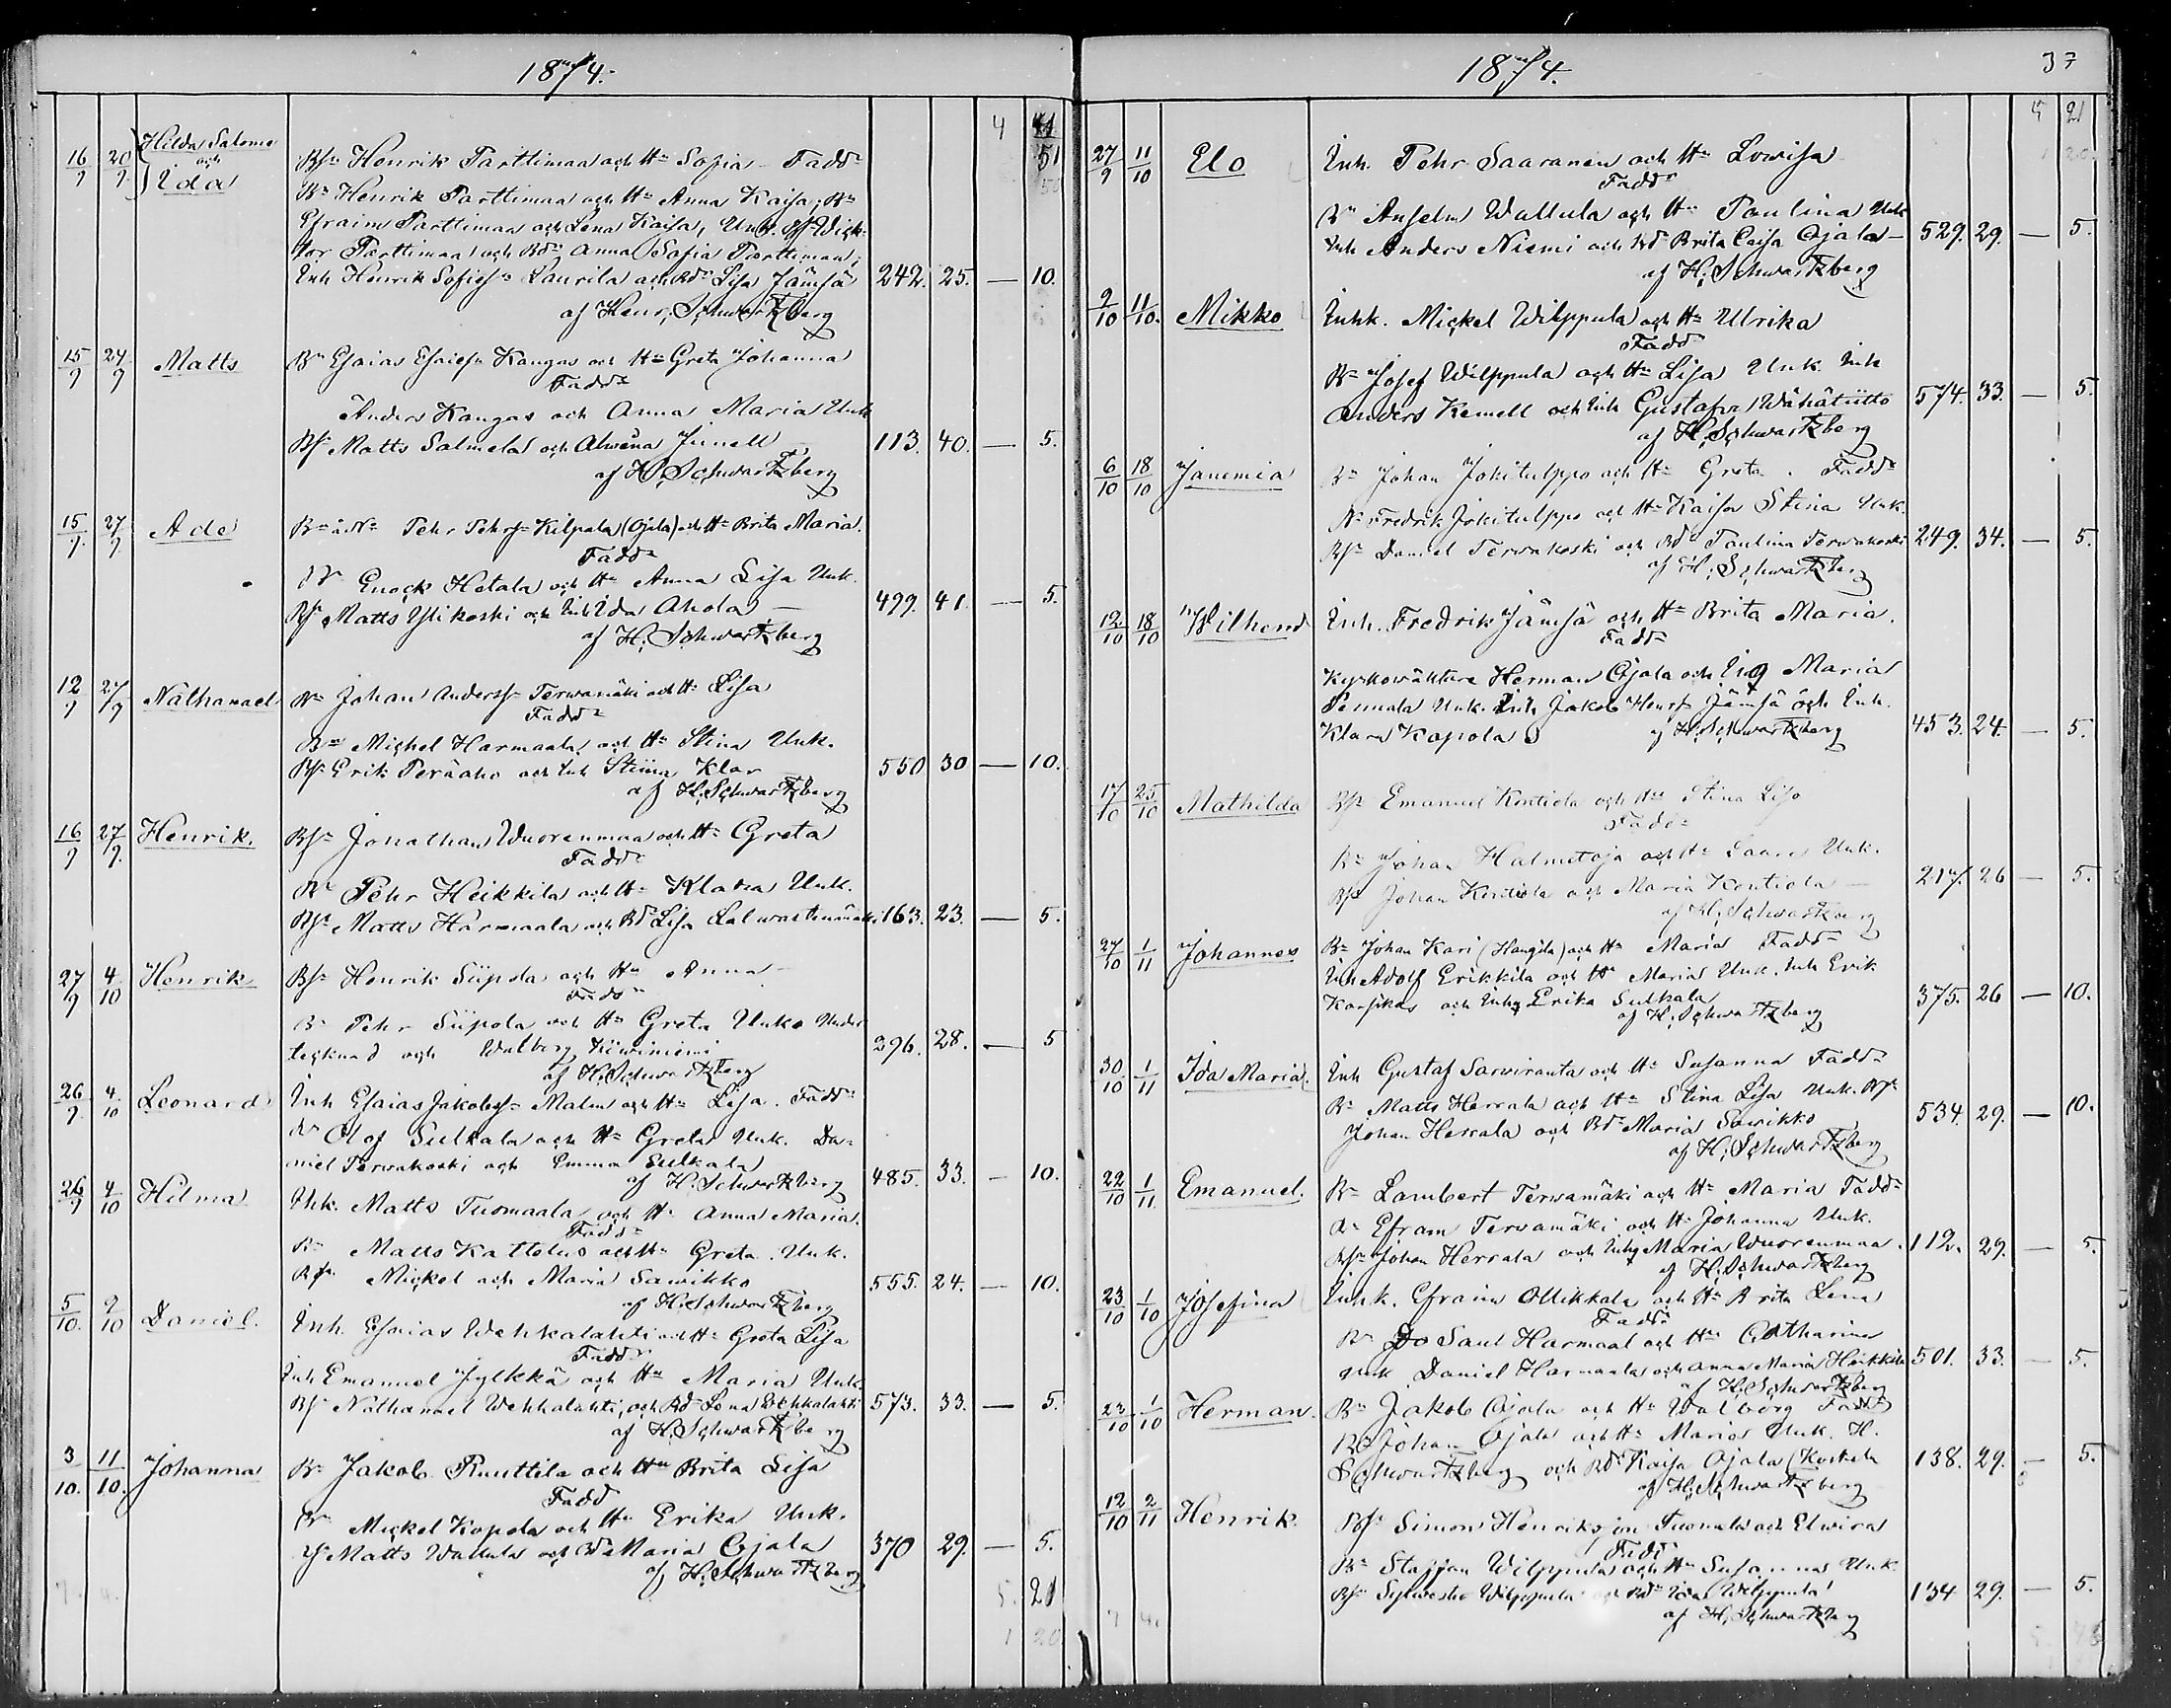 1874.
4 41
51
16/9 20/9 Hilda Salome
och
Ida
Bs. Henrik Parttimaa och H. Sofia Fadd
B. Henrik Parttimaa och H. Anna Kaisa, B.
Efraim Parttimaa och Lena Kaisa, Unk. Bs. Wick-
tor Parttimaa och Bd. Anna Sofia Parttimaa,
Inh Henrik Sofies. Laurila och Bd. Lisa Jämsä 242. 25. — 10.
af Henr. Schwartzberg
15/9 27/9 Matts B. Esaias Esaies. Kangas och H. Greta Johanna
Fadd
Anders Kangas och Anna Maria Unk
Bs. Matts Salmela och Alwina Junell 113. 40. — 5.
af H. Schwartzberg
15/9 27/9 Ade B. i N. Pehr Pehrs. Kilpala (Ojala) och H. Brita Maria.
Fadd
B. Enock Hetala och H. Anna Lisa Unk.
Bs. Matts Ylikoski och Inh Ida Ahola — 499. 41. — 5.
af H. Schwartzberg
12/9 27/9 Nathanael B. Johan Anderss. Terwamäki och H. Lisa
Fadd
B. Michel Harmaala och H. Stina Unk.
Bs. Erik Peräaho och Inh Stiina Klar 550 30 — 10.
af H. Schwartzberg
16/9 27/9 Henrik. Bs. Jonathan Wuorenmaa och H. Greta
Fadd
B. Pehr Heikkila och H. Klara Unk.
Bs. Matts Harmaala och Bd. Lisa 163. 23. — 5.
27/9 4/10 Henrik Bs. Henrik Siipola och H. Anna
Fadd
B. Pehr Siipola och H. Greta Unk. Under
tecknad och Walborg Kiwiniemi 296. 28. — 5
af H. Schwartzberg
26/9 4/10 Leonard Inh Esaias Jakobss. Malm och H. Lisa. Fadd
B. Olof Sulkala och H. Greta Unk. Da-
niel Terwakoski och Emma Sulkala
af H. Schwartzberg 485. 33. — 10.
26/9 4/10 Hilma Inh. Matts Tuomaala och H. Anna Maria.
Fadd
B. Matts Kattelus och H. Greta. Unk.
Bs. Mickel och Maria Sawikko 555. 24. — 10.
af H. Schwartzberg
5/10. 9/10 Daniel. Inh. Esaias Wehkalahti och H. Greta Lisa
Fadd
Inh Emanuel Jylkkä och H. Maria Unk.
Bs. Nathanael Wehkalahti, och Bd. Lena Wehkalahti 573. 33. — 5.
af H. Schwartzberg
3/10. 11/10. Johanna B. Jakob Ruuttila och H. Brita Lisa
Fadd
B. Mickel Kopola och H. Erika Unk.
Matts Wallula och Bd. Maria Ojala 370 29. — 5.
af H. Schwartzberg
5. 21
1 20
1874.
37
5 21
27/9 11/10 Elo Inh. Pehr Saaranen och H. Lowisa
Fadd
B. Anselm Wallula och H. Paulina Unk
Inh Anders Niemi och Bd. Brita Caisa Ojala — 529. 29. — 5.
af H. Schwartzberg
9/10 11/10. Mikko Inhk. Mickel Wilppula och H. Ulrika
Fadd
B. Josef Wilppula och H. Lisa Unk. Inh
Anders Kemell och Inh Gustafva Wähätiitto 574. 33. — 5.
af H. Schwartzberg
6/10 18/10 Janemia B. Johan Jokitulppo och H. Greta. Fadd
N. Fredrik Jokitulppo och H. Kaisa Stina Unk.
Bs. Daniel Terwakoski och Bd. Paulina Terwakoski 249. 34. — 5.
af H. Schwartzberg
12/10 18/10 Inh. Fredrik Jämsä och H. Brita Maria.
Fadd
Kyrkowäktare Herman Ojala och Maria
Unk. Inh Jakob Henrs. Jämsä och Inh.
Klara Kopola af H. Schwartzberg 453. 24. — 5.
17/10 25/10 Mathilda Bs. Emanuel Kontiola och H. Stina Lisa
Fadd
B. Johan Halmetoja och H. Saara Unk.
Bs. Johan Kontiola och Maria Kontiola — 217. 26 — 5.
af H. Schwartzberg
27/10 1/11 Johannes B. Johan Kari (Hangila) och H. Maria Fadd
Inh Adolf Erikkila och H. Maria Unk. Inh Erik
Korsikas och Inh Erika Sulkala 375. 26 — 10.
af H. Schwartzberg
30/10 1/11 Ida Maria Inh Gustaf Sarwiranta och H. Susanna Fadd
B. Matts Herrala och H. Stina Lisa Unk. Bs.
Johan Herrala och Bd. Maria Sawikko 534. 29. — 10.
af H. Schwartzberg
22/10 1/11. Emanuel. B. Lambert Terwamäki och H. Maria Fadd
B. Efram Terwamäki och H. Johanna Unk.
Bs. Johan Herrala och Inh Maria Wuorenmaa. 112. 29. — 5.
af H. Schwartzberg
23/10 1/10 Josefina Inhk. Efraim Ollikkala och H. Brita Lena
Fadd
B. Saul Harmaal och H. Catharina
Unk Daniel Harmaala och Anna Maria Heikkila 501. 33. — 5.
af H. Schwartzberg
23/10 1/10 Herman. B. Jakob Ojala och H. Walborg Fadd
B. Johan Ojala och H. Maria Unk. H.
Schwartzberg och Bd. Kaisa Ojala (Koskela 138. 29. — 5.
af H. Schwartzberg
12/10 2/11 Henrik. Bs. Simon Henriksson Tuomala och Elwira
Fadd
B. Staffan Wilppula och H. Susanna Unk.
Bs. Sylwester Wilppula och Bd. Ida Wilppula 134 29. — 5.
af H. Schwartzberg